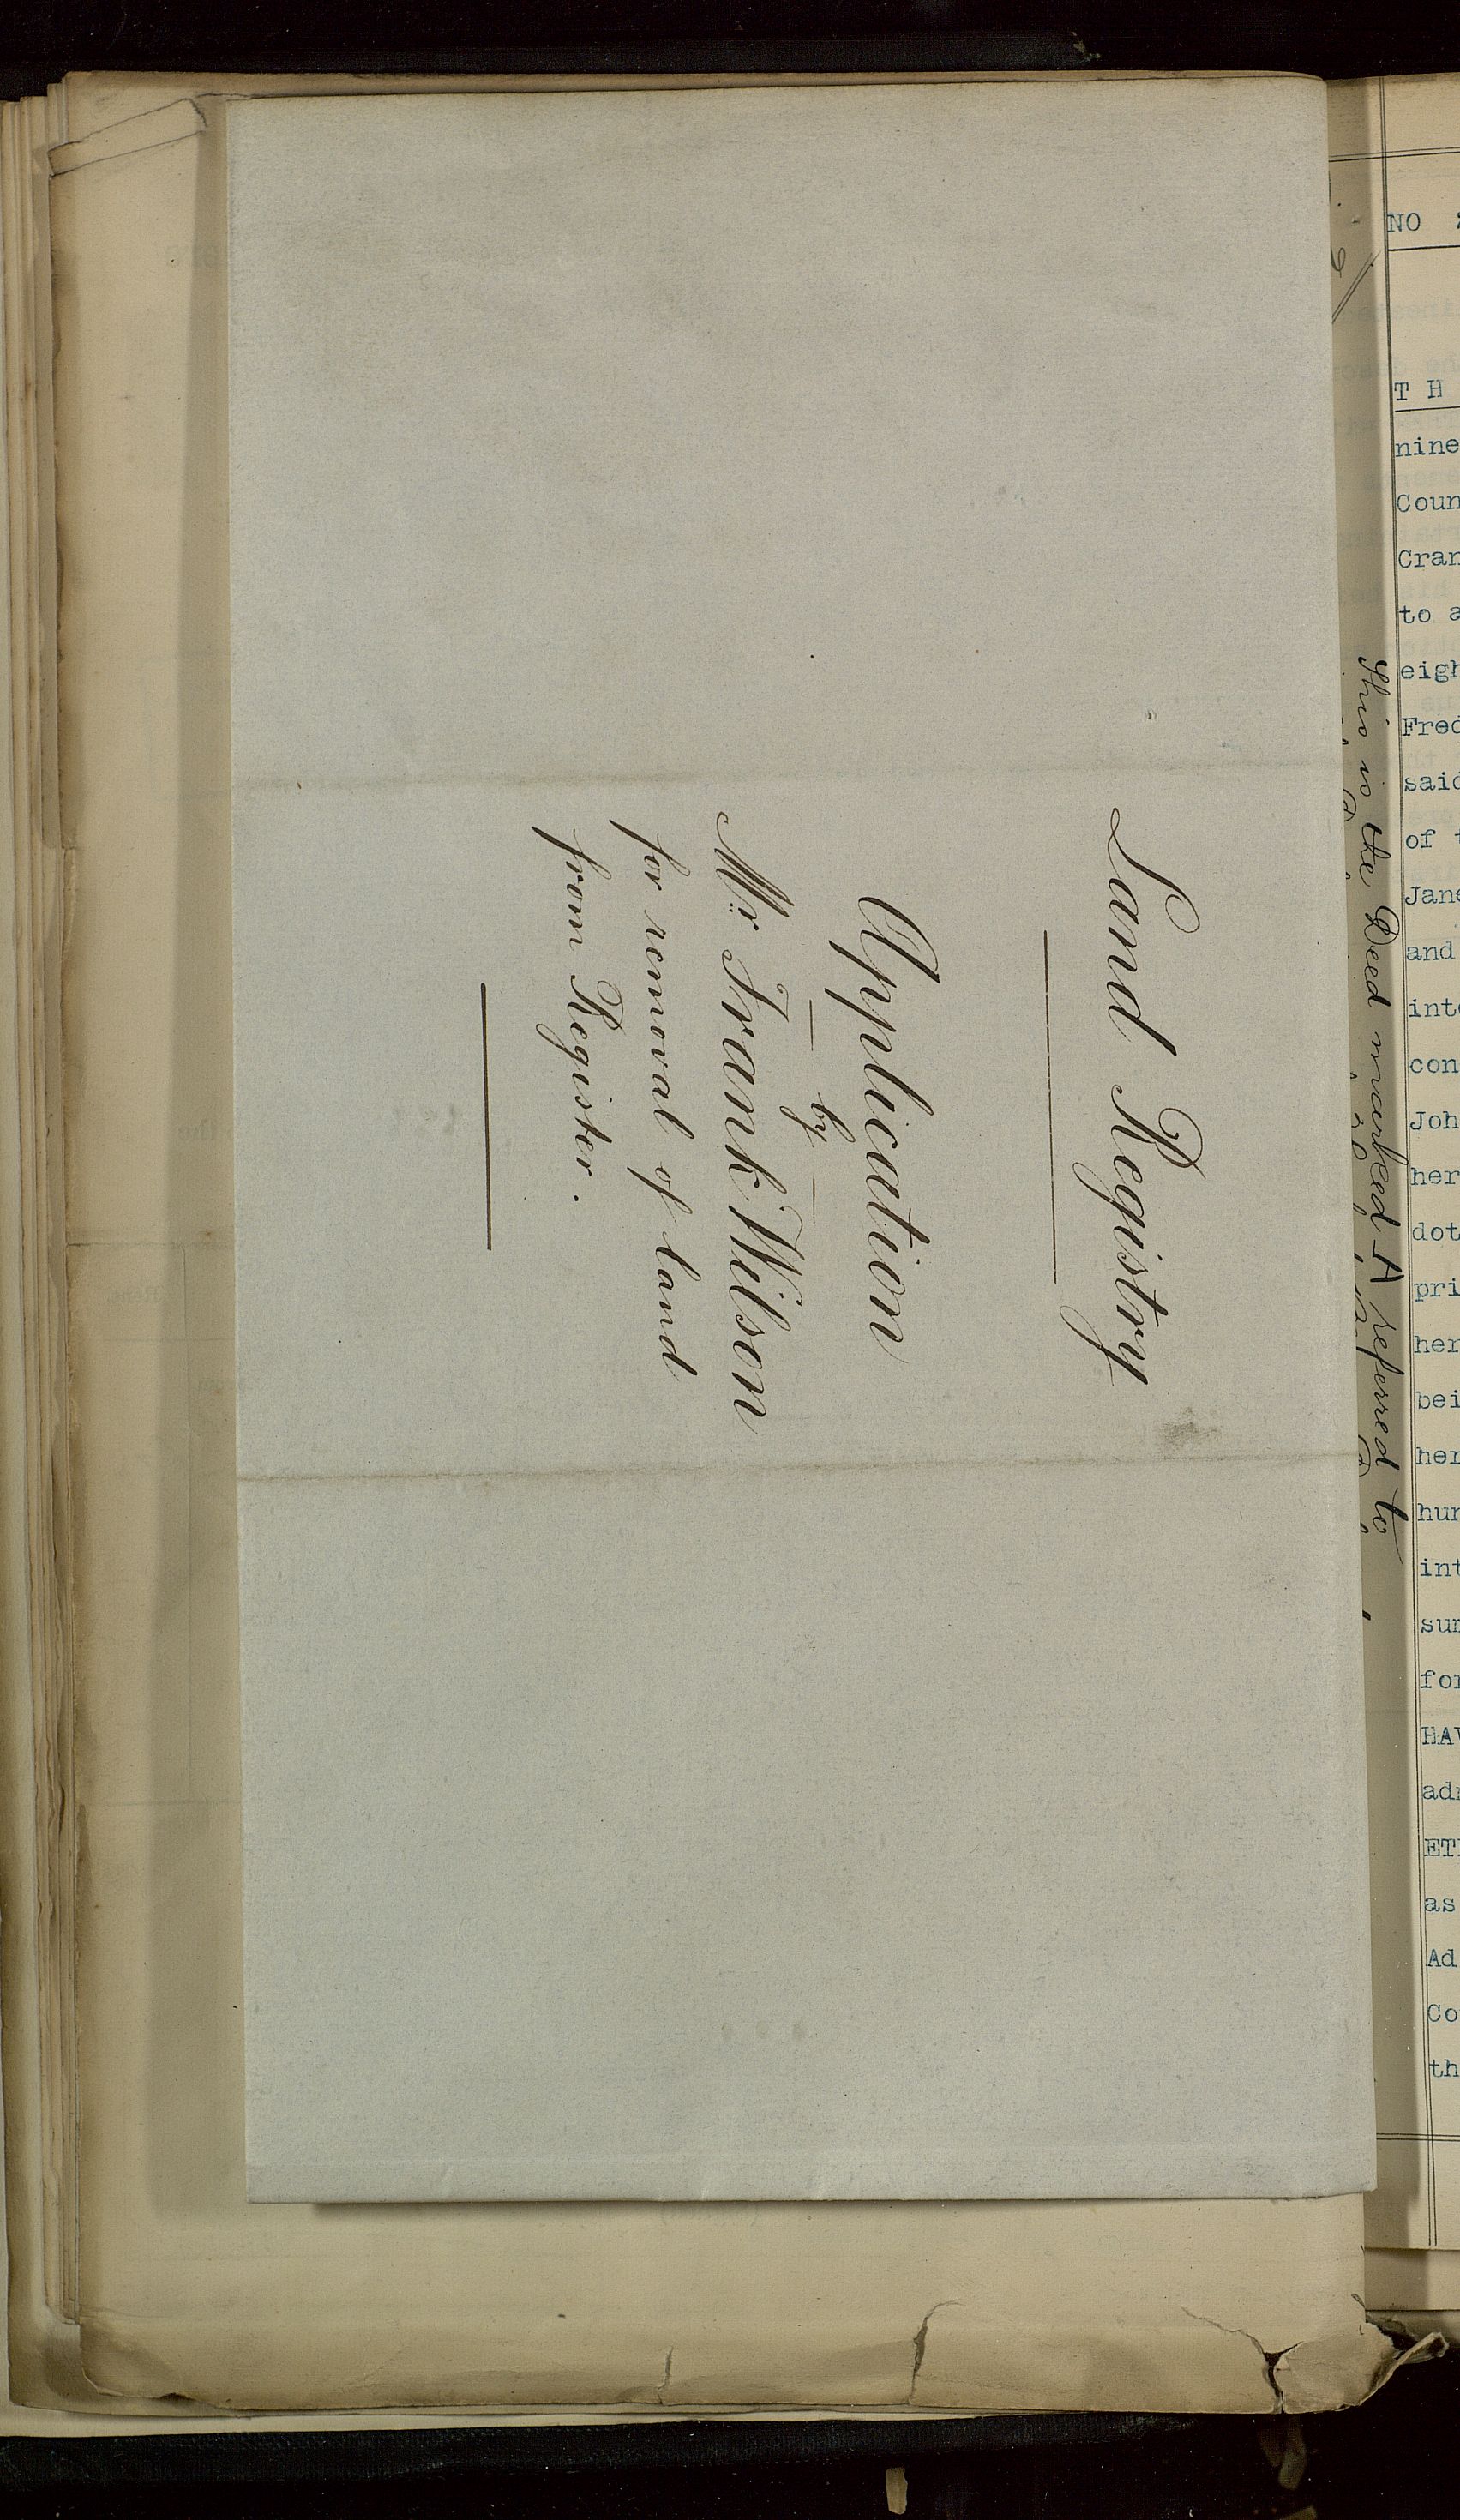 Land Registry
Application
by
Mr. Frank Wilson
for removal of land
from Register.
This is the Deed marked A referred to
NO
T H
nine
Coun
Cran
to a
eigh
Fred
said
of t
Jane
and
inte
con
Joh
her
dot
pri
her
bei
her
hun
int
sum
for
HAV
adm
ETH
as
Ad
Co
th